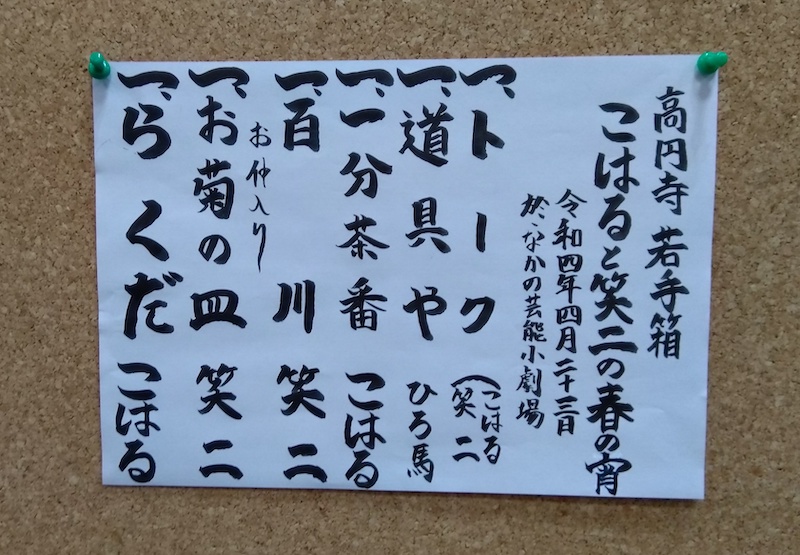 高円寺若手箱
こはると笑二の春の宵
令和四年四月二十三日
於・なかの芸能小劇場
一、トーク(こはる 笑二
一、道具や ひろ馬
一、一分茶番 こはる
一、百川 笑二
お仲入り
一、お菊の皿 笑二
一、らくだ こはる